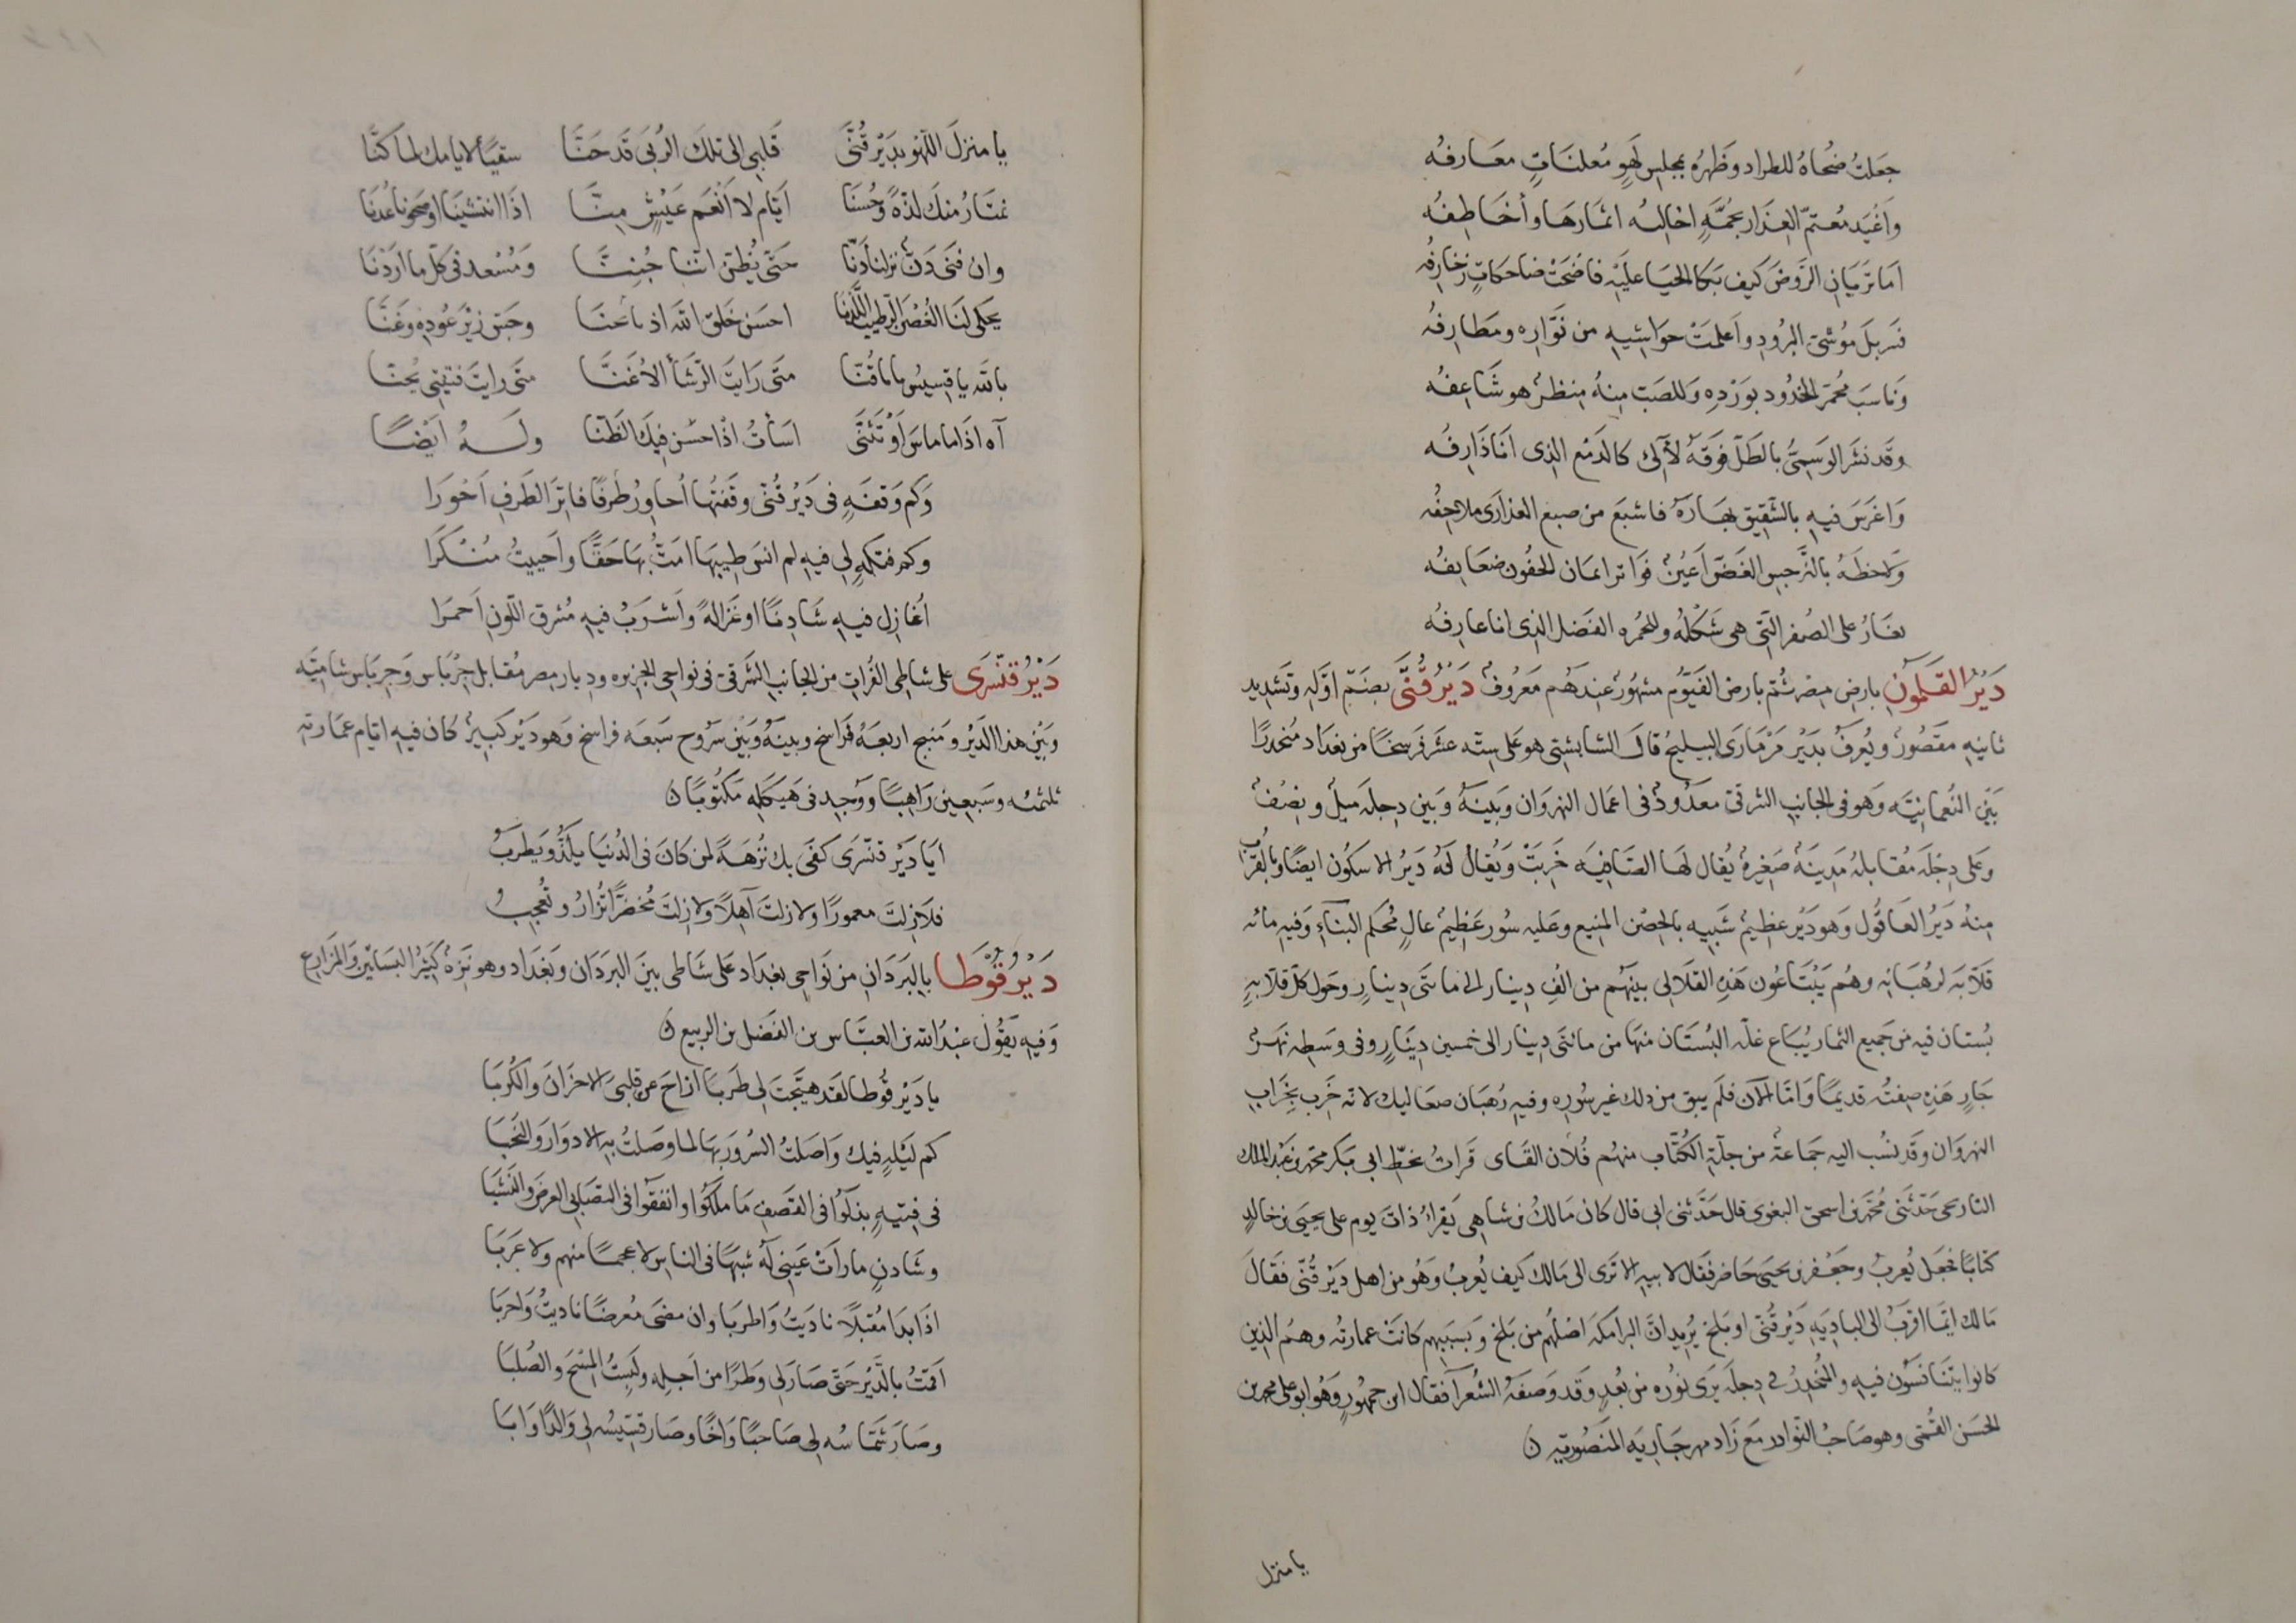 جعلتُ ضُحاهُ للطراد وظهرُه بمجلس لهوٍ مُعلنَاتٍ معَارفُه
وأغيَد مُعتمّ العِذار بجُمَّةٍ اخالسُه اثمارَها وأخَاطِفُه
اما تريَانِ الرّوضَ كيف بَكا الحَيَا عليهِ فاضحَتْ ضاحكاتٍ زخارِفُه
فسَربلَ مَوْشيّ البرُودِ واعلمَتْ حوَاشيهِ من نَوّاره ومَطارِفُه
وناسَبَ محمَرّ الخدُود بوَرْدِه وَللصَبّ مِنهُ مَنظرٌ هو شَاعِفُه
وقد نثرَ الوَسميُّ بالطَلّ فوقَهُ لآلئ كالدَمع الذى انا ذَارِفُه
وَاغرَسَ فيهِ بالشّقِيق بهَارَهُ فاشبعَ من صبع العذارَى ملاحِفُه
وَلاحظهُ بالنَّرجسِ الغَضّ اعيُنٌ فوَاتر ايمان الجفُون ضعَايفُه
يغَارُ على الصُفر التّى هى شكلُهُ وللحُمره الفَضل الذى انا عارِفُه
دَيْرُ القَلمُونِ بارض مِصرَ ثمّ بارض الفَيّوم مشهُورٌ عندَهُم مَعرُوفٌ دَيْرُ قُنَّى بضَمّ اوّلهِ وتَشديد
ثانيهِ مقصُورٌ ويُعرفُ بدَيْر مَرْمارى السليخُ قالَ الشابشتى هو عَلى ستّه عشَر فرسخًا من بغدَاد مُنحدرًا
بَيْن النُعمانيّه وَهو فى الجانبِ الشرقىّ معدُودٌ فى اعمَال النهروَان وَبينَهُ وَبين دِجلَه ميلٌ ونصفٌ
وَعلى دِجلَه مُقابلهُ مَدِينَةٌ صَغيرهٌ يُقال لهَا الصَافيه خَرِبَتْ وَيُقالُ لَهُ دَيرُ الاسكُون ايضًا وَبالقُرب
مِنهُ دَيرُ العَاقُول وَهو دَيْر عظيمٌ شَبِيه بالحِصْن المنيع وعَليه سُور عَظيمٌ عالٍ مُحكَم البنَاءِ وَفيهِ مائه
قَلّايَه لرُهبَانِه وهُم يَبْتاعُون هَذِهِ القلَالى بينَهُم من الفِ دِينار الى ماىتَى دِينارٍ وحَول كلّ قلّايهٍ
بُستان فيه من جَميع الثمار يُبَاع غلّه البُستَان منهَا من مائتى دِينار الى خمسين دِينَارٍ وفى وَسَطهِ نهرٌ
جَارٍ هَذِهِ صِفتُه قديمًا وَامّا الآن فلَم يبقَ من ذلك غير سُورِه وفيهِ رُهبَان صعَاليك لانّه خَرب بخَرابِ
النهروَان وقَد نُسب اليه جَماعةٌ من جلّة الكُتّاب منهُم فُلان القناى قَراتُ بخَطّ ابى بَكر محمّد بن عَبْد الملك
التاريخى حَدّثنى مُحمّد بن اسحق البغوى قال حَدّثنى ابى قال كان مَالكُ بن شاهى يَقراُ ذاتَ يوم على يحيَى بن خالدٍ
كتابًا فجَعل يُعربُ وجَعْفر بن يحيى حَاضر فقال لابيهِ الا تَرى الى مَالك كيف يُعربُ وَهُو من اهل دَيْر قُنّى فقَالَ
مَالك ايّما اقربُ الى الباديَهِ دَيْر قُنّى او بَلخ يُريدُ انّ البرامكه اصْلُهُم من بَلخ وَبسبَبِهِم كانتْ عمارتُه وهُم الذين
كانوا يتَنافسُون فيهِ والمُنحدِرُ فى دِجلَه يَرى نورُه من بُعدٍ وقد وَصفَهُ الشُعَراء فقال ابن جمهُورٍ وَهُو ابو على محمد بن
الحسَن القُمّى وهو صَاحبُ النوادر مَع زَاد مهر جَاريَه المنصُوريّه ن
يا منزل
يا منزلَ اللّهو بدَيْر قُنَّى قَلبى الى تلكَ الرُبى قَد حَنَّا سقيًا لايامك لما كنّا
نمتَارُ منكَ لذّةً وَحُسنَا ايّام لا انْعَم عَيْشٍ مِنّا اذَا انتشيَنا او صَحونا عُدنَا
وان فنَى دَنّ نزلنا دَنّا حَتّى يُظنّ انّنا جُننّا وَمُسْعد فى كلّ ما ارَدْنَا
يحكى لنَا الغُصنَ الرّطيبَ اللَّدْنا احسَن خلق الله اذ تاَنّا وجَسّ زيْرَ عُودِه وغنّا
بالله يا قِسيسُ يا باقُنّا متى رَايتَ الرّشَا الاغنّا متى رايتَ فتنتى يُحنّا
آه اذَا ما ماسَ اوْ تَثَنَّى اسَاتُ اذ احسَن فيكَ الظنّا ولَهُ ايْضًا
وَكم وَقفَهٍ فى دَيْر قُنّى وقَفتُها اُحاورُ ظَرفًا فاتِرَ الطَرفِ احوَرا
وكم فتكةٍ لى فيهِ لم انسَ طيبهَا امَتُّ بهَا حَقًّا واَحييتُ مُنْكَرا
اُغازِل فيهِ شَادِنًا او غزالةً واَشرَبُ فيهِ مُشرق اللّونِ احمرَا
دَيْرُ قنّسْرَى على شاطى الفُرات من الجانب الشرقىّ فى نواحى الجزيره وديار مضر مُقابل جِرْباس وَجِربَاس شاميّه
وبَيْن هذا الدَيْر ومنبج اربعَهُ فَراسخ وبينَهُ وَبيْن سَرُوج سَبعَه فراسخ وَهو دَيْر كَبيرٌ كان فيهِ ايّام عمَارته
ثلثمئه وسَبعين رَاهبًا وَوُجد فى هَيكلهِ مَكتُوبًا ن
ايَا دَيْر قنّسْرى كفَى بك نُزهَةً لمن كانَ فى الدُنيَا يلَذُّ وَيَطرَبُ
فلا زلتَ معمورًا ولا زلتَ آهلًا ولا زلتَ مُخضرًّا تُزارُ وتُعجبُ
دَيْرُ قُوْطا بالبَرَدَانِ من نَواحى بغدَاد عَلى شَاطى بينَ البرَدَان وبَغدَاد وهو نَزِهٌ كَثيرُ البسَاتين والمزَارع
وَفيهِ يَقُولُ عبْدُ الله بن العبّاس بن الفضل بن الربيع ن
يا دَيْر قُوطا لقد هيّجتَ لى طَرَبَا ازاحَ عن قلبىَ الاحزَانَ والكُرَبَا
كم ليلةٍ فيك وَاصَلتُ السُرورَ بهَا لما وصَلتُ بهِ الادوَارَ والنُخَبَا
فى فِتيةٍ بذلوا فى القَصفِ ما ملكوا وانفقوا فى التصَابى العرضَ والنّشَبا
وشَادنٍ ما رأتْ عَينى لهُ شبَهًا فى الناس لا عجمًا منهم ولا عَرَبَا
اذَا بَدا مُقبلًا ناديتُ وَاطربا وان مضَى مُعرضًا ناديتُ وَاحربَا
اقمْتُ بالدَّيْر حَتّى صَار لى وطنًا من اَجلِه ولبستُ المِسْحَ والصُلبَا
وصَارَ شمّاسُه لى صَاحبًا وَاخًا وصَار قسّيسُه لى وَالدًا وَابَا